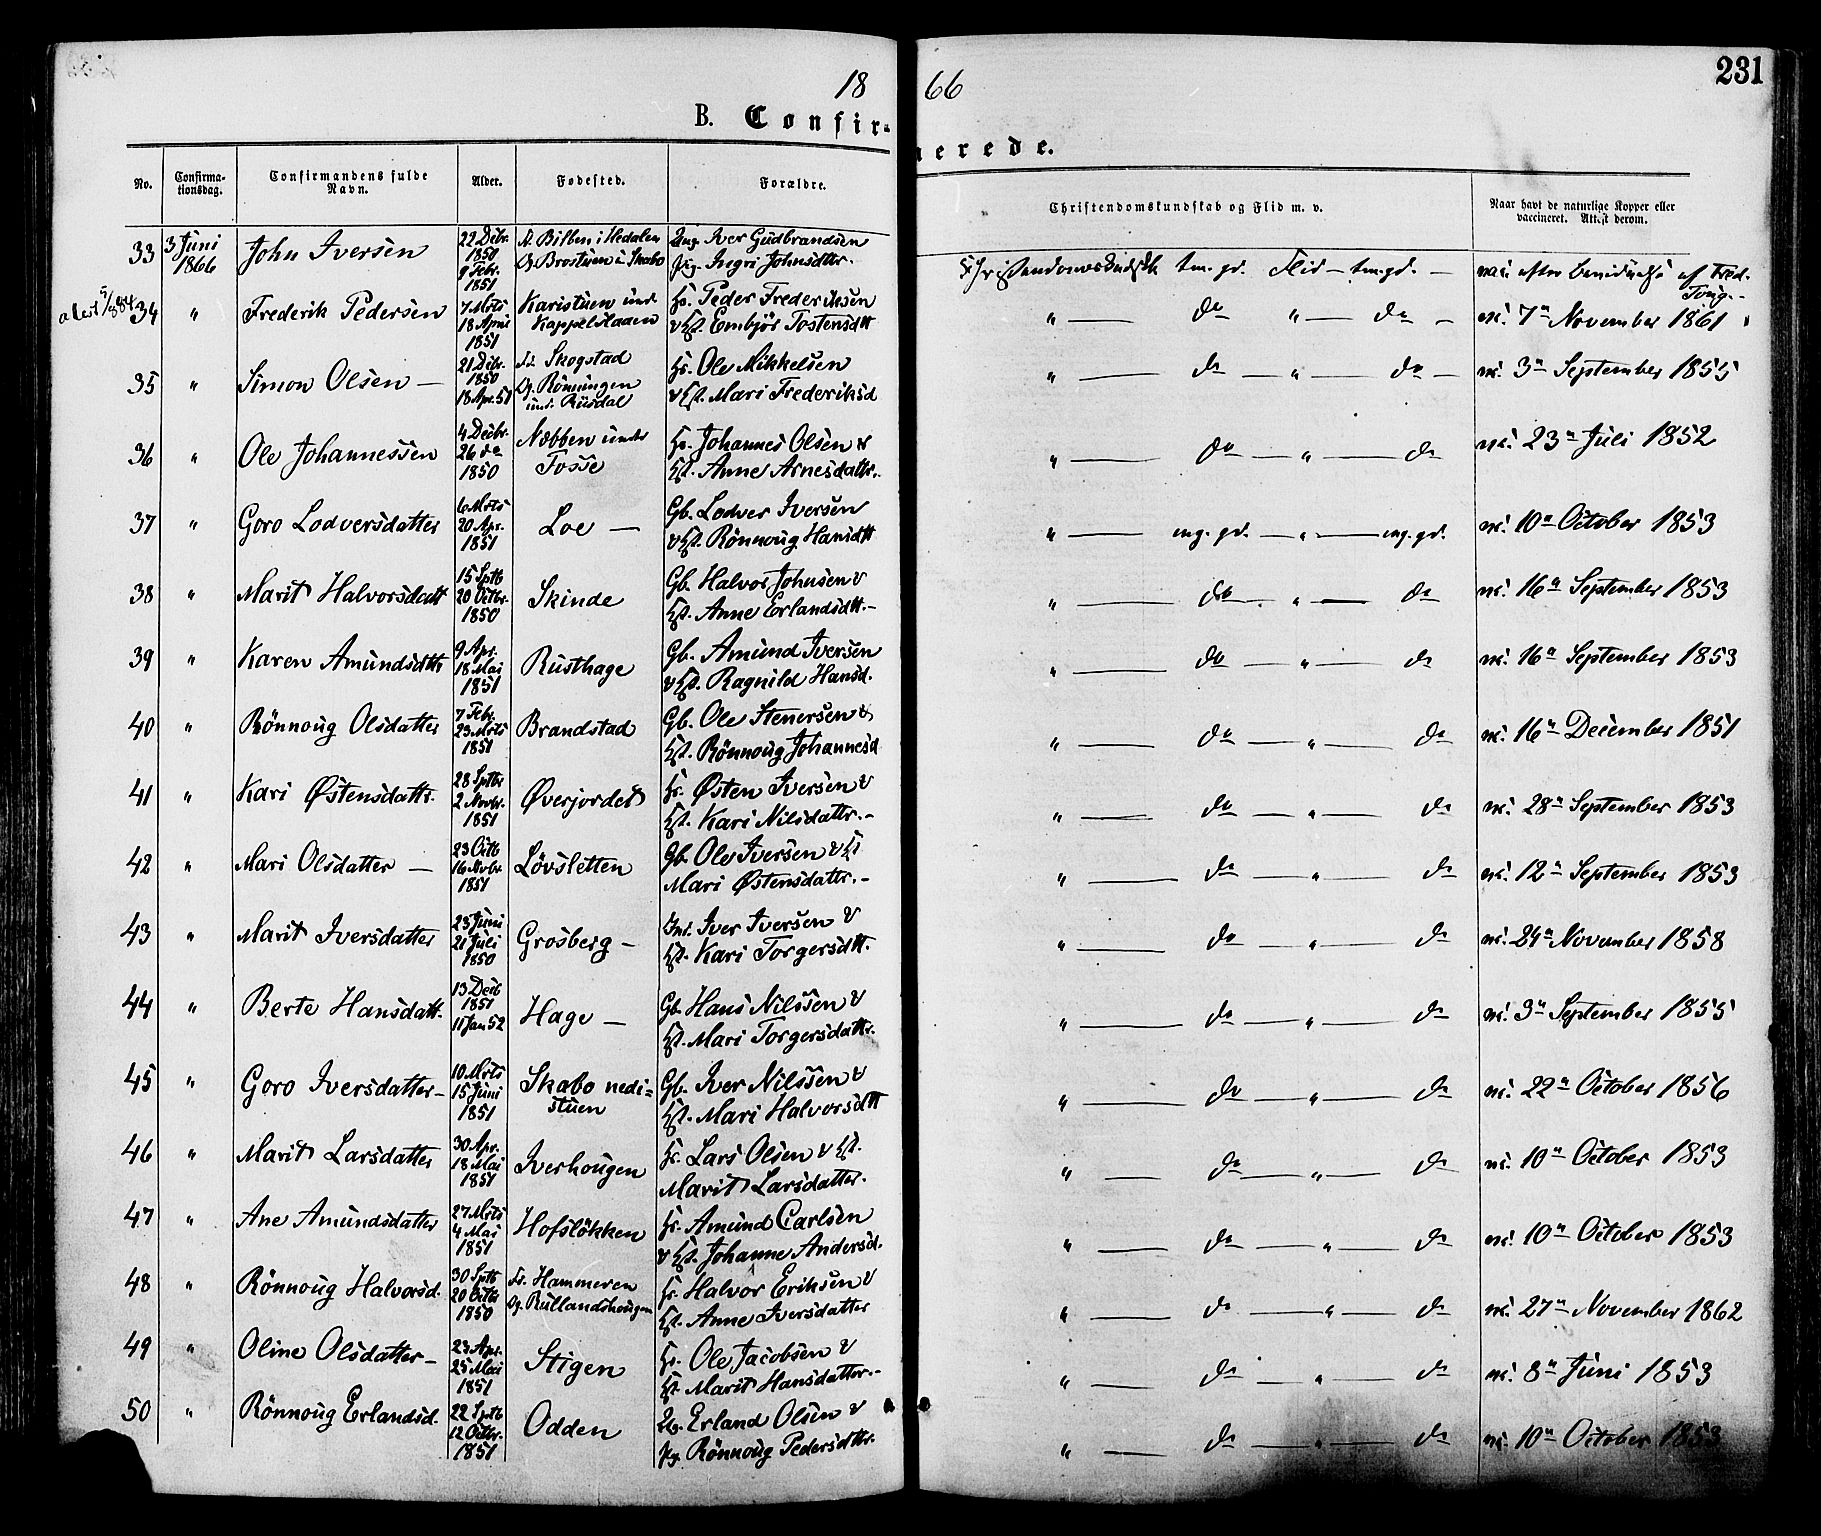 18 66
231
B. Confir- merede.
No.
Confirma-
tionsdag.
Confirmandens fulde
Navn.
Alder.
Fødested.
Forældre.
Christendomskundskab og Flid m. v.
Naar havt de naturlige Kopper eller
vaccineret. Attest derom.
33 3 Juni 1866 John Iversen 22 Decbr. 1850 9 Febr. 1851 f. Bilben i Hedalen Og. Brostuen i Skabo Ung. Iver Gudbrandsen Pig. Ingri Johnsdttr. Christendomskundsk tm. gd. Flid — tm. gd. —
34 " Frederik Pedersen 7 Mrts 18 April 1851 Karistuen und. Kappelslaaen Hs. Peder Frederiksen v Kst. Embjør Tostensdtt " — do " — do — vac. 7de November 1861
35 " Simon Olsen — 21 Decbr. 1850 18 Apr. 51 Fr. Skogstad Og. Rönningen und. Rusdal Hs. Ole Mikkelsen v Kst. Mari Frederiksd " — do — " — do — vac. 3de September 1855
36 " Ole Johannessen 4 Decbr. 26 do 1850 Nebben under Fosse Hs. Johannes Olsen v Kst. Anne Arnesdattr. " — do — " — do vac. 23de Juli 1852
37 " Goro Lodversdatter 6 Mrts 20 Apr. 1851 Loe — Gb. Lodver Iversen v Kst. Rönnoug Hansdtt " — mg. gd. — " — mg. gd. vac. 10de October 1853
38 " Marit Halvorsdatt 15 Sptb 20 Octbr. 1850 Skinde Gb. Halvor Johnsen v Kst. Anne Erlandsdtt. — " — do — " — do vac. 16de September 1853
39 " Karen Amundsdttr 9 Apr. 18 Mai 1851 Rusthage Gb. Amund Iversen v Kst. Ragnild Hansd. " — do — " — do vac. 16de September 1853
40 " Rönnoug Olsdatter 7 Febr. 23 Mrts 1851 Brandstad Gb. Ole Stenersen v Kst. Rönnoug Johannesd " — do — " — do vac. 16de December 1851
41 " Kari Østensdattr. 28 Sptbr 2 Novbr. 1851 Øverjordet Hs. Østen Iversen v Kst. Kari Nilsdattr. — " — do — " — do vac. 28de September 1853
42 " Mari Olsdatter — 23 Octb 16 Novbr. 1851 Lövsletten Gb. Ole Iversen v Kst Mari Østensdattr. — " — do — " — do vac. 12te September 1853
43 " Marit Iversdatter 23 Juni 21 Juli 1850 Grosberg — Ind. Iver Iversen v Kst. Kari Torgersdtt. " — do — " — do vac. 24de November 1858
44 " Berte Hansdatt. 13 Decb 1851 11 Jan 52 Hage — Gb. Hans Nilssen v Kst. Mari Torgersdattr. " — do — " — do vac. 3de September 1855
45 " Goro Iversdatter — 10 Mrts 15 Juni 1851 Skabo nedi- stuen Gb. Iver Nilssen v Kst. Mari Halvorsdtt " — do — " — do vac. 22de October 1856
46 " Marit Larsdatter 30 Apr. 18 Mai 1851 Iverhougen Hs. Lars Olsen v Kst. Marit Larsdatter. " — do — " — do vac. 10de October 1853
47 " Ane Amundsdatter 27 Mrts 4 Mai 1851 Hofslökken Hs. Amund Carlsen v Kst. Johanne Andersd. " — do — " — do vac. 10de October 1853
48 " Rönnoug Halvorsd. 30 Sptb 20 Octbr 1850 Fr. Hammeren Og. Rullandshougen Hs. Halvor Eriksen v Kst. Anne Iversdatter " — do — " — do vac. 27de November 1862
49 " Oline Olsdatter — 23 Apr. 25 Mai 1851 Stigen Hs. Ole Jacobsen v Kst. Marit Hansdatter. — " — do — " — do vac. 8de Juni 1853
50 " Rönnoug Erlandsd. 22 Sptb 12 Octbr. 1851 Odden Erland Olsen v Pg. Rönnoug Pedersdttr. " — do — " — do vac. 10de October 1853